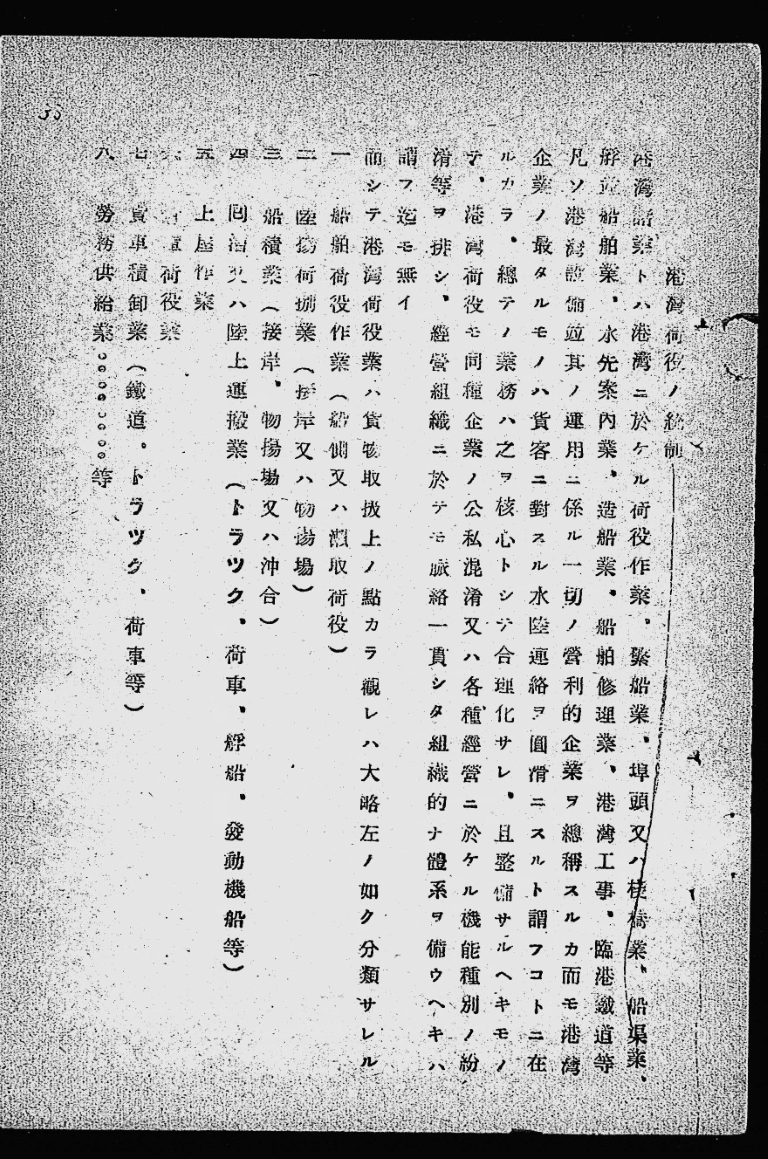 港灣荷役ノ統制
港灣諸業トハ港灣ニ於ケル荷役作業、繫船業、埠頭又ハ棧橋業、船渠業、
解𦨞船舶業、水先案內業、造船業、船舶修理業、港灣工事、臨港鐵道等
凡ソ港灣設備竝其ノ運用ニ係ル一切ノ營利的企業ヲ總稱スルカ而モ港灣
企業ノ最タルモノハ貨客ニ對スル水陸連絡ヲ圓滑ニスルト謂フコトニ在
ルカラ、總テノ業務ハ之ヲ核心トシテ合理化サレ、且整備サルヘキモノ
テ、港灣荷役モ同種企業ノ公私混淆又ハ各種經營ニ於ケル機能種別ノ紛
淆等ヲ排シ、經營組織ニ於テモ脈絡一貫シタ組織的ナ體系ヲ備ウヘキハ
謂フ迄モ無イ
而シテ港灣荷役業ハ貨物取扱上ノ點カラ觀レハ大略左ノ如ク分類サレル
一 船舶荷役作業(船側又ハ瀨取荷役)
二 陸揚荷捌業(接岸又ハ物揚場)
三 船積業(接岸、物揚場又ハ沖合)
四 囘漕又ハ陸上運搬業(トラツク、荷車、艀船、發動機船等)
五 上屋作業
六 倉庫荷役業
七 貨車積卸業(鐵道、トラツク、荷車等)
八 勞務供給業○○○○○○○○等